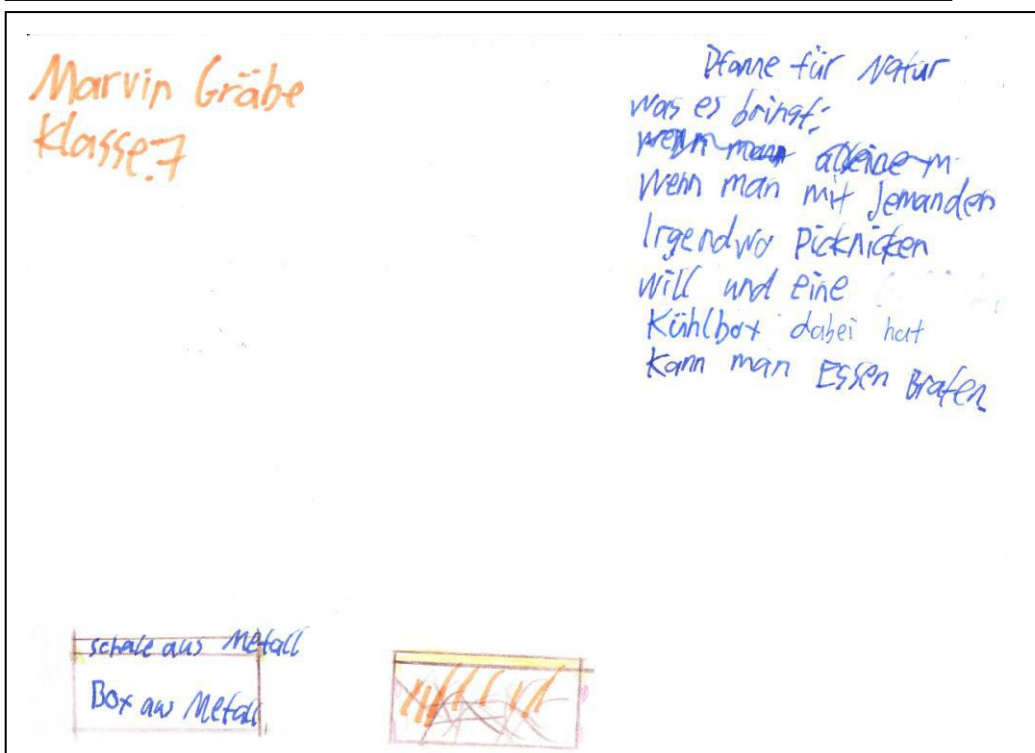 Marvin Gräbe
Klasse.7
Pfanne für Natur
Was es bringt:
wenn man alleine m
Wenn man mit Jemanden
Irgendwo Picknicken
will und eine
Kühlbox dabei hat
kann man Essen Braten
schale aus Metall
Box aus Metall